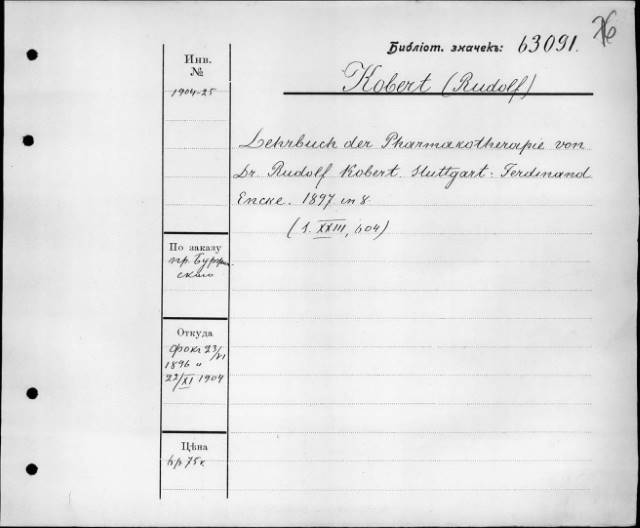 Библіот. значекъ: 63091.
Kobert (Rudolf)
Инв.
№
1904-25
Lehrbuch der Pharmakotherapie von
Dr. Rudolf Kobert. Stuttgart: Ferdinand
Encke. 1897 in 8.
(1. XXIII, 604)
По заказу
пр.
скаго
Откуда
23/VI
1896 "
22/XI 1904
Цѣна
6р 75к